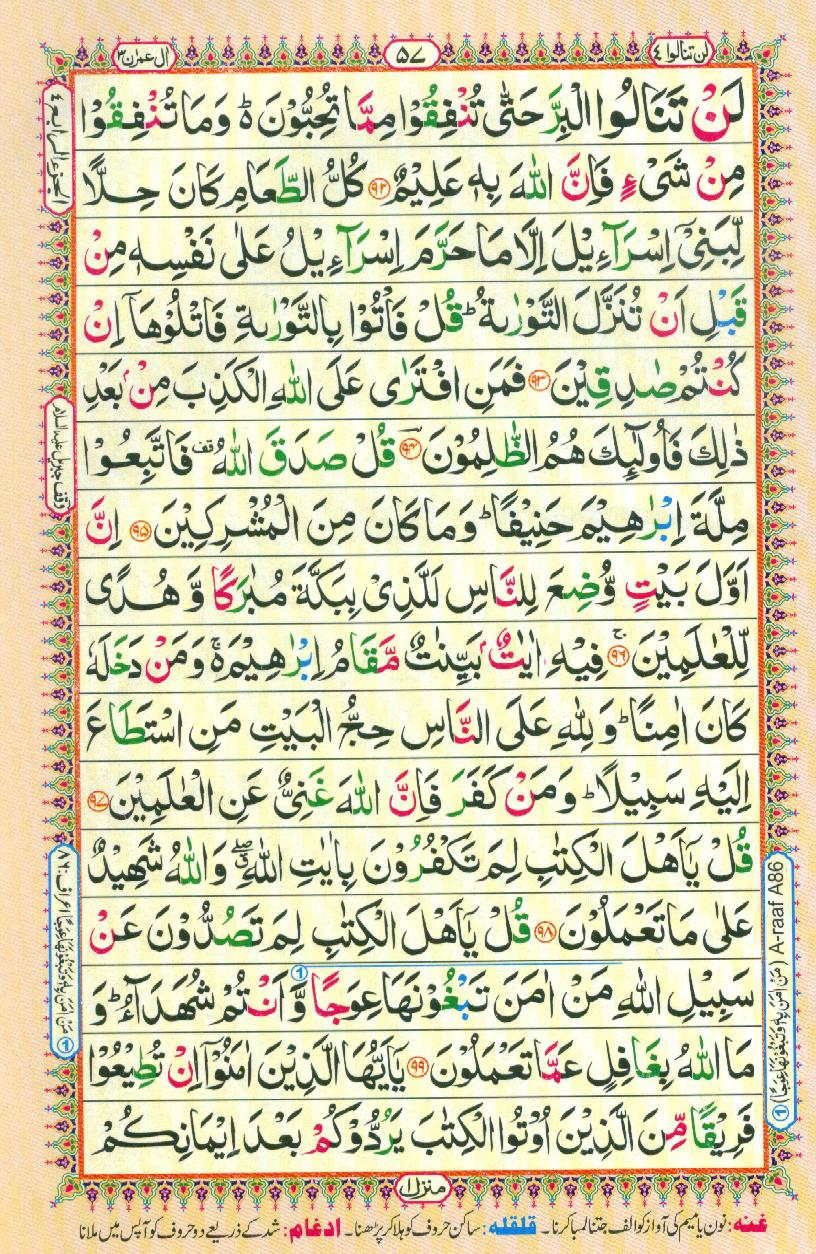 لن تنالوا ٤
٥٧
اٰل عمرٰن ٣
لَنْ تَنَالُوا الْبِرَّ حَتّٰى تُنْفِقُوْا مِمَّا تُحِبُّوْنَ ؕ۬ وَمَا تُنْفِقُوْا
مِنْ شَىْءٍ فَاِنَّ اللّٰهَ بِهٖ عَلِيْمٌ ﴿۹۲﴾ كُلُّ الطَّعَامِ كَانَ حِلًّا
لِّبَنِىْۤ اِسْرَآءِيْلَ اِلَّا مَا حَرَّمَ اِسْرَآءِيْلُ عَلٰى نَفْسِهٖ مِنْ
قَبْلِ اَنْ تُنَزَّلَ التَّوْرٰىةُ ؕ قُلْ فَاْتُوْا بِالتَّوْرٰىةِ فَاتْلُوْهَاۤ اِنْ
كُنْتُمْ صٰدِقِيْنَ ﴿۹۳﴾ فَمَنِ افْتَرٰى عَلَى اللّٰهِ الْكَذِبَ مِنْۢ بَعْدِ
ذٰلِكَ فَاُولٰٓئِكَ هُمُ الظّٰلِمُوْنَ ﴿۹۴﴾ قُلْ صَدَقَ اللّٰهُ قف فَاتَّبِعُوْا
مِلَّةَ اِبْرٰهِيْمَ حَنِيْفًا ؕ وَمَا كَانَ مِنَ الْمُشْرِكِيْنَ ﴿۹۵﴾ اِنَّ
اَوَّلَ بَيْتٍ وُّضِعَ لِلنَّاسِ لَلَّذِىْ بِبَكَّةَ مُبٰرَكًا وَّ هُدًى
لِّلْعٰلَمِيْنَ ﴿۹۶﴾ۚ فِيْهِ اٰيٰتٌۢ بَيِّنٰتٌ مَّقَامُ اِبْرٰهِيْمَ ۬ۚ وَمَنْ دَخَلَهٗ
كَانَ اٰمِنًا ؕ وَ لِلّٰهِ عَلَى النَّاسِ حِجُّ الْبَيْتِ مَنِ اسْتَطَاعَ
اِلَيْهِ سَبِيْلًا ؕ وَمَنْ كَفَرَ فَاِنَّ اللّٰهَ غَنِىٌّ عَنِ الْعٰلَمِيْنَ ﴿۹۷﴾
قُلْ يٰۤاَهْلَ الْكِتٰبِ لِمَ تَكْفُرُوْنَ بِاٰيٰتِ اللّٰهِ ۖ وَاللّٰهُ شَهِيْدٌ
عَلٰى مَا تَعْمَلُوْنَ ﴿۹۸﴾ قُلْ يٰۤاَهْلَ الْكِتٰبِ لِمَ تَصُدُّوْنَ عَنْ
سَبِيْلِ اللّٰهِ مَنْ اٰمَنَ تَبْغُوْنَهَا عِوَجًا وَّ اَنْتُمْ شُهَدَآءُ ؕ وَ
مَا اللّٰهُ بِغَافِلٍ عَمَّا تَعْمَلُوْنَ ﴿۹۹﴾ يٰۤاَيُّهَا الَّذِيْنَ اٰمَنُوْۤا اِنْ تُطِيْعُوْا
فَرِيْقًا مِّنَ الَّذِيْنَ اُوْتُوا الْكِتٰبَ يَرُدُّوْكُمْ بَعْدَ اِيْمَانِكُمْ
الجزء الرابع ٤
وقف جبريل عليه السلام
① مَنْ اٰمَنَ بِهٖ وَتَبْغُوْنَهَا عِوَجًا اعراف: ۸۶
① (مَنْ اٰمَنَ بِهٖ وَتَبْغُوْنَهَا عِوَجًا) A-raaf A86
منزل ١
غنہ: نون یا میم کی آواز کو الف جتنا لمبا کرنا۔ قلقلہ: ساکن حروف کو ہلا کر پڑھنا۔ ادغام: شد کے ذریعے دو حروف کو آپس میں ملانا